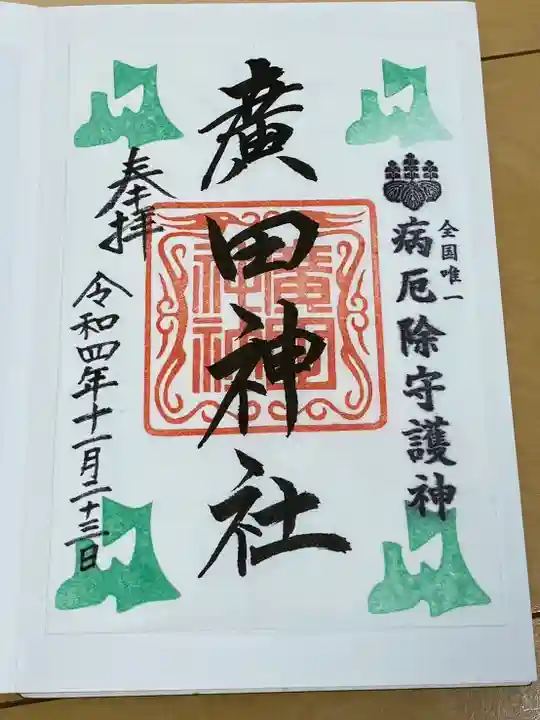 全国唯一
病厄除守護神
廣田神社
廣田
神社
奉拝
令和四年十一月二十三日